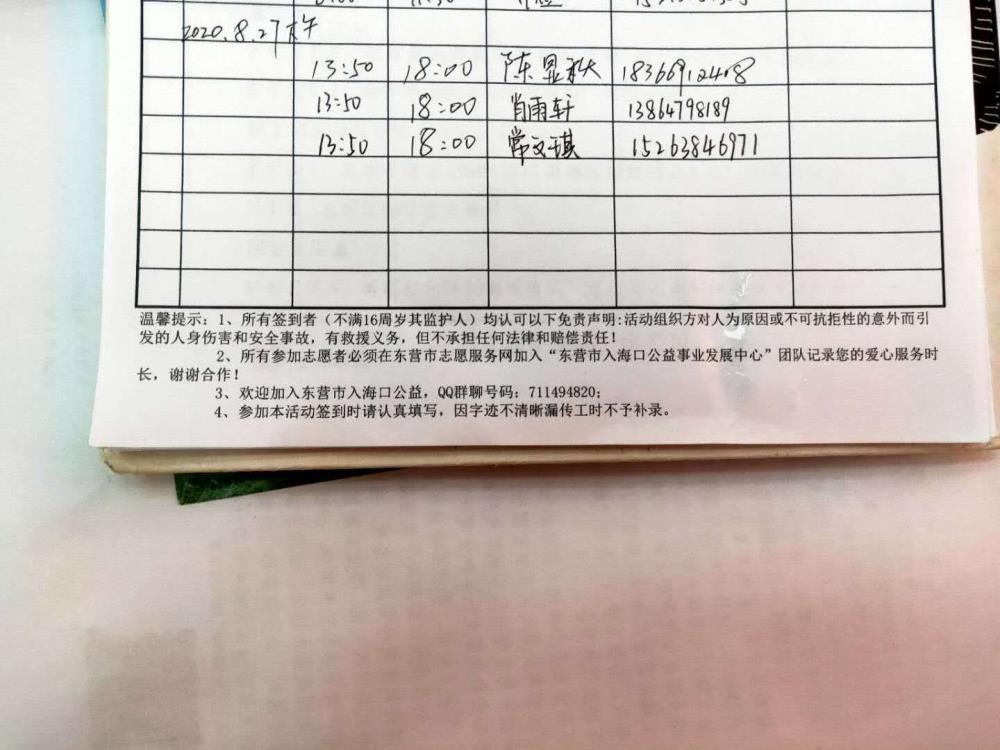 2020.8.27下午
13:50 18:00 陈显秋 18366912408
13:50 18:00 肖雨轩 13864798189
13:50 18:00 常文琪 15263846971
温馨提示：1、所有签到者（不满16周岁其监护人）均认可以下免责声明:活动组织方对人为原因或不可抗拒性的意外而引
发的人身伤害和安全事故，有救援义务，但不承担任何法律和赔偿责任！
2、所有参加志愿者必须在东营市志愿服务网加入“东营市入海口公益事业发展中心”团队记录您的爱心服务时
长，谢谢合作！
3、欢迎加入东营市入海口公益，QQ群聊号码：711494820；
4、参加本活动签到时请认真填写，因字迹不清晰漏传工时不予补录。